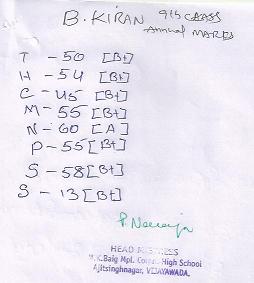 B. KIRAN 9th CLASS
Annual MARKS
T - 50 [B+]
H - 54 [B+]
C - 45 [B+]
M - 55 [B+]
N - 60 [A]
P - 55 [B+]
S - 58 [B+]
S - 13 [B+]
HEAD MISTRESS
M.K.Baig Mpl. High School
Ajitsinghnagar, VIJAYAWADA.